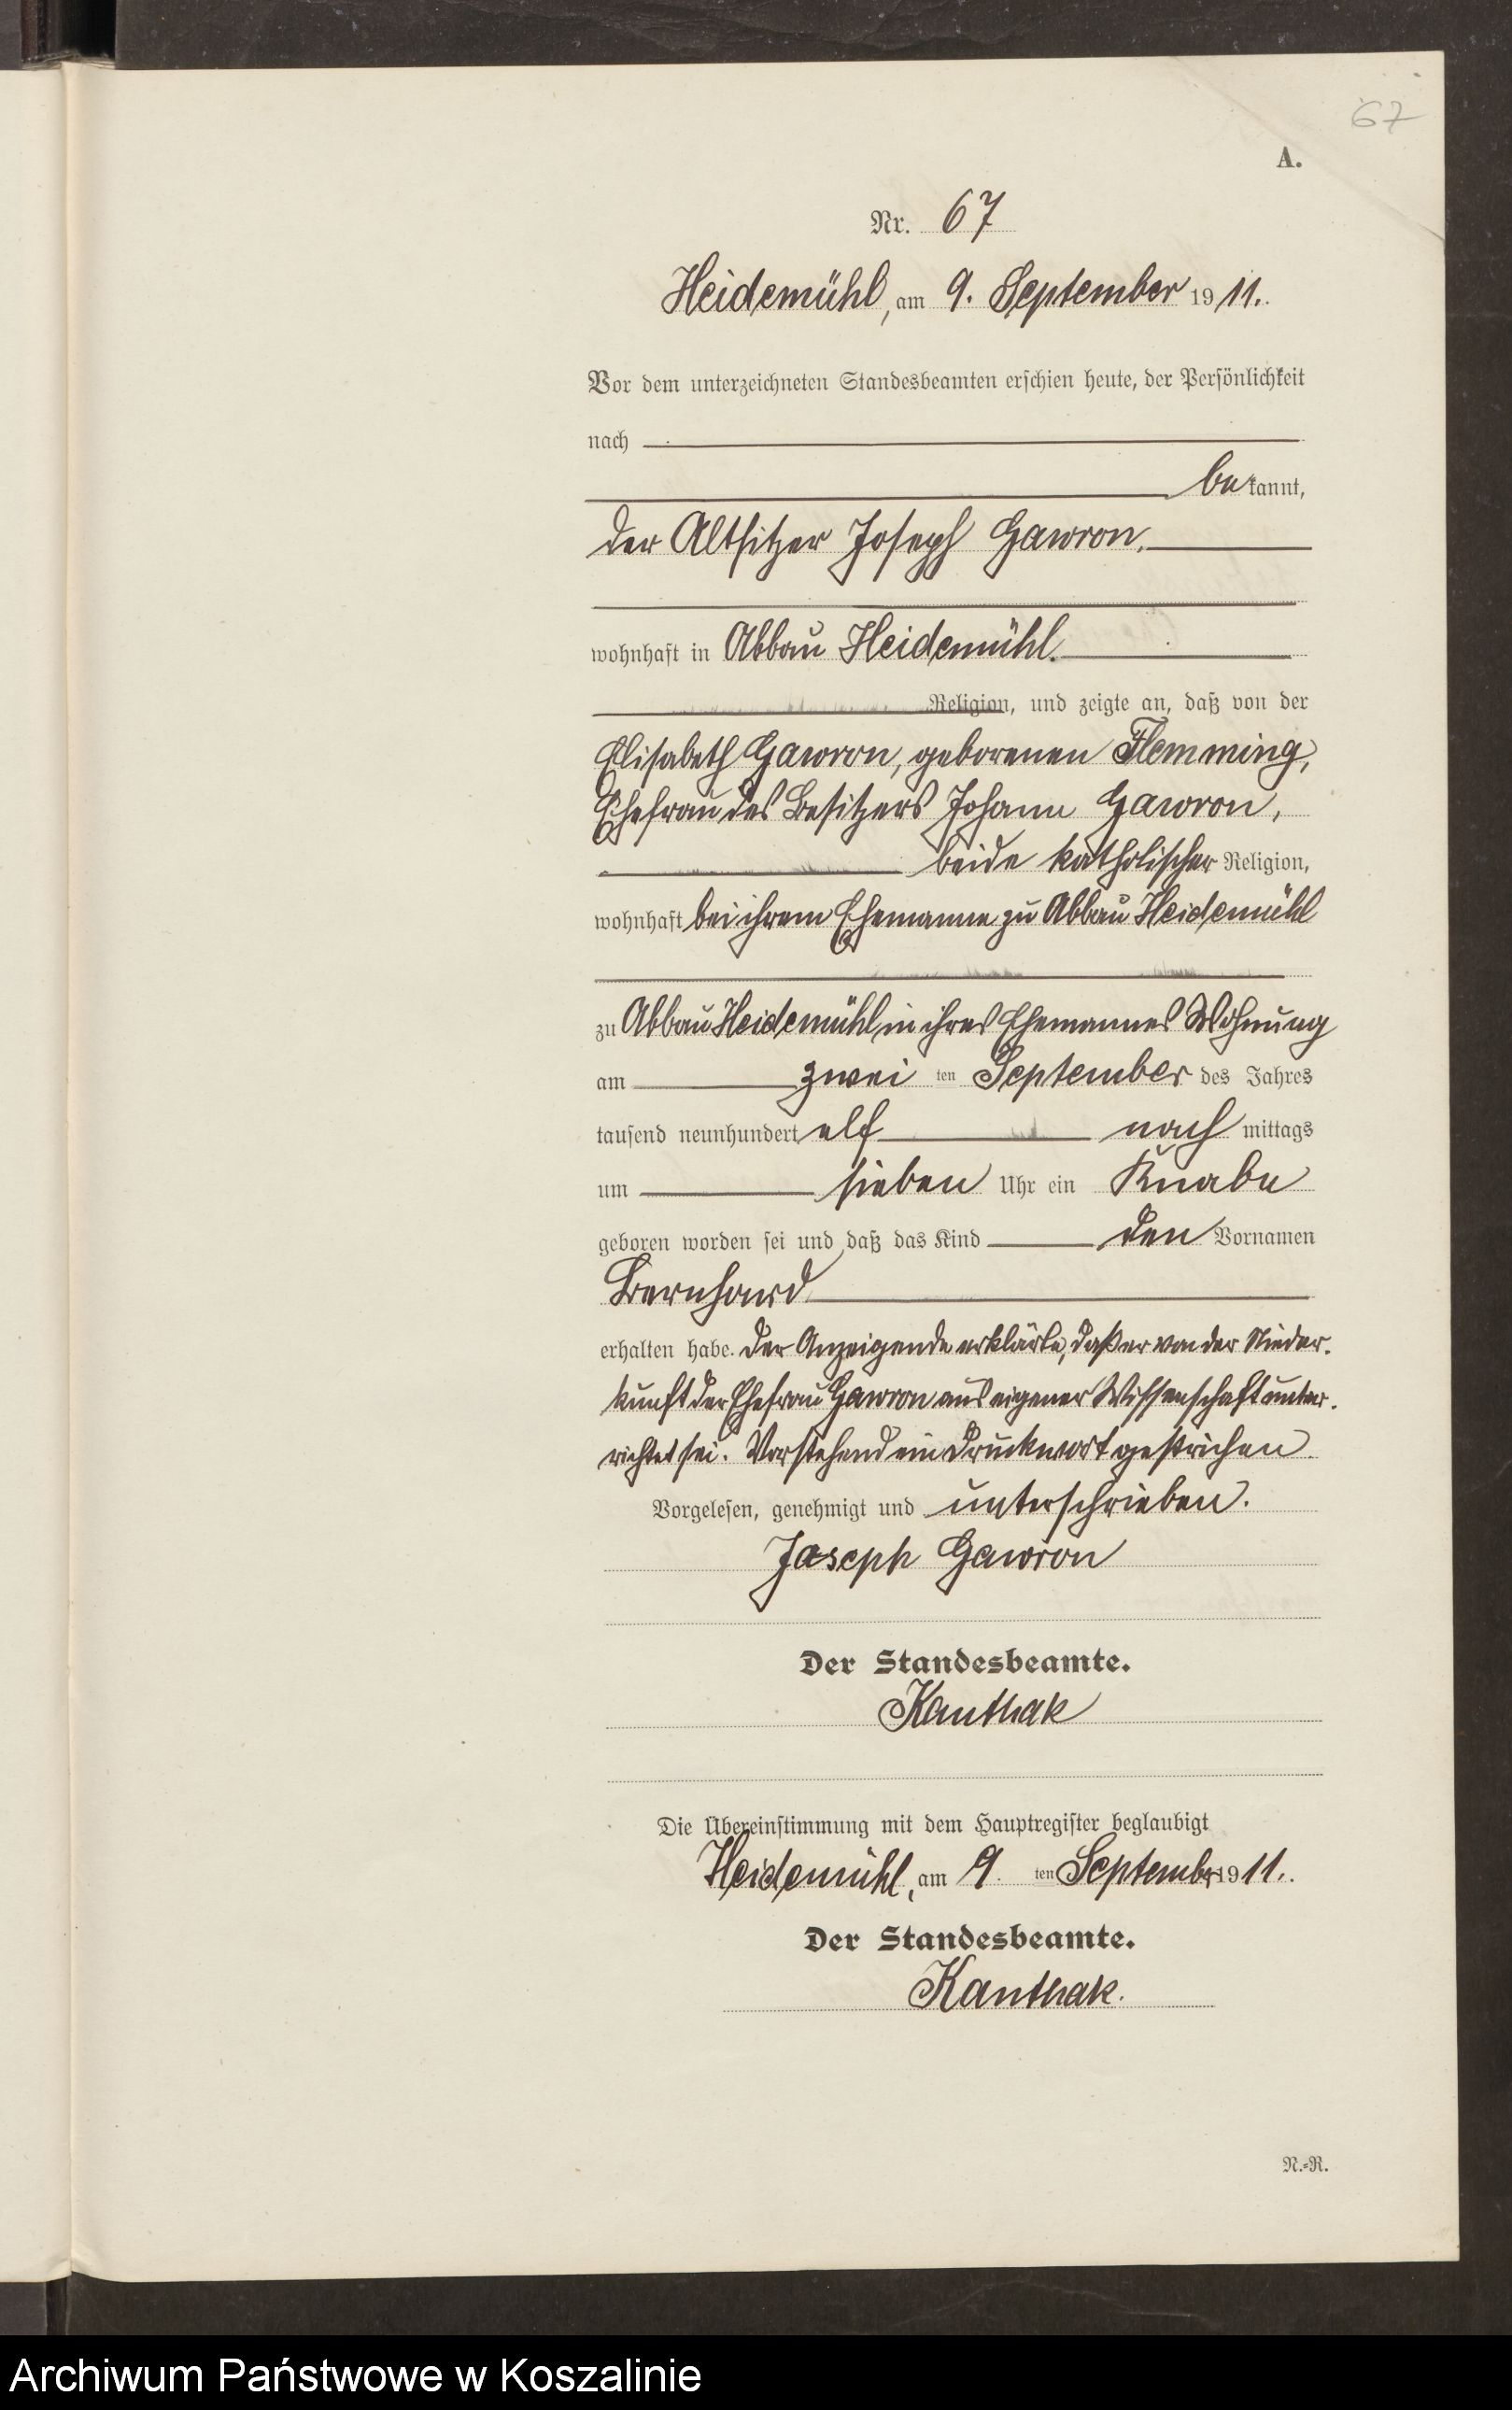 67
A.
Nr. 67
Heidemühl, am 9. September 1911.
Vor dem unterzeichneten Standesbeamten erschien heute, der Persönlichkeit
nach
bekannt,
der Altsitzer Joseph Gawron,
wohnhaft in Abbau Heidemühl.
Religion, und zeigte an, daß von der
Elisabeth Gawron, geborenen Flemming,
Ehefrau des Besitzers Johann Gawron,
beide katholischer Religion,
wohnhaft bei ihrem Ehemanne zu Abbau Heidemühl
zu Abbau Heidemühl in ihres Ehemannes Wohnung
am zwei ten September des Jahres
tausend neunhundert elf nach mittags
um sieben Uhr ein Knabe
geboren worden sei und daß das Kind den Vornamen
Bernhard
erhalten habe. Der Anzeigende erklärte, daß er von der Nieder-
kunft der Ehefrau Gawron aus eigener Wissenschaft unter-
richtet sei. Vorstehend ein Druckwort gestrichen.
Vorgelesen, genehmigt und unterschrieben.
Joseph Gawron
Der Standesbeamte.
Kanthak
Die Übereinstimmung mit dem Hauptregister beglaubigt
Heidemühl, am 9. ten September 1911.
Der Standesbeamte.
Kanthak.
N.-R.
Archiwum Państwowe w Koszalinie